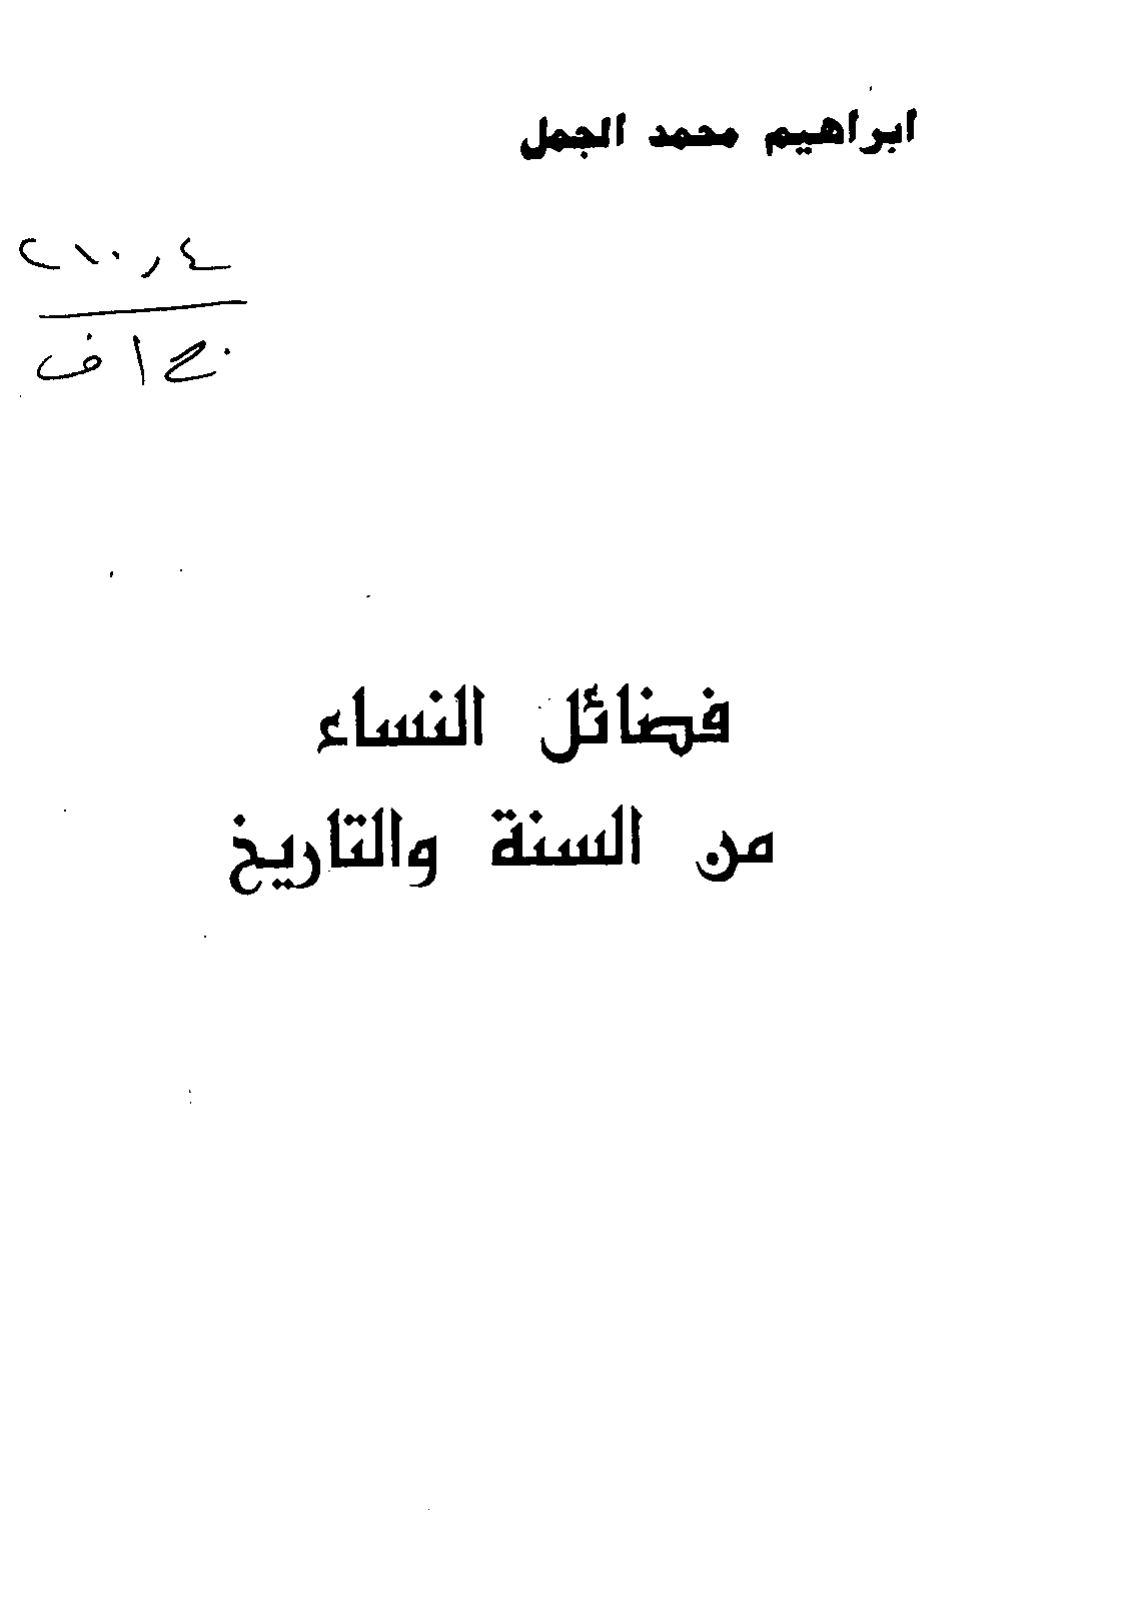 ابراهيم محمد الجمل
٢١٠٫٤
فضائل النساء
من السنة والتاريخ